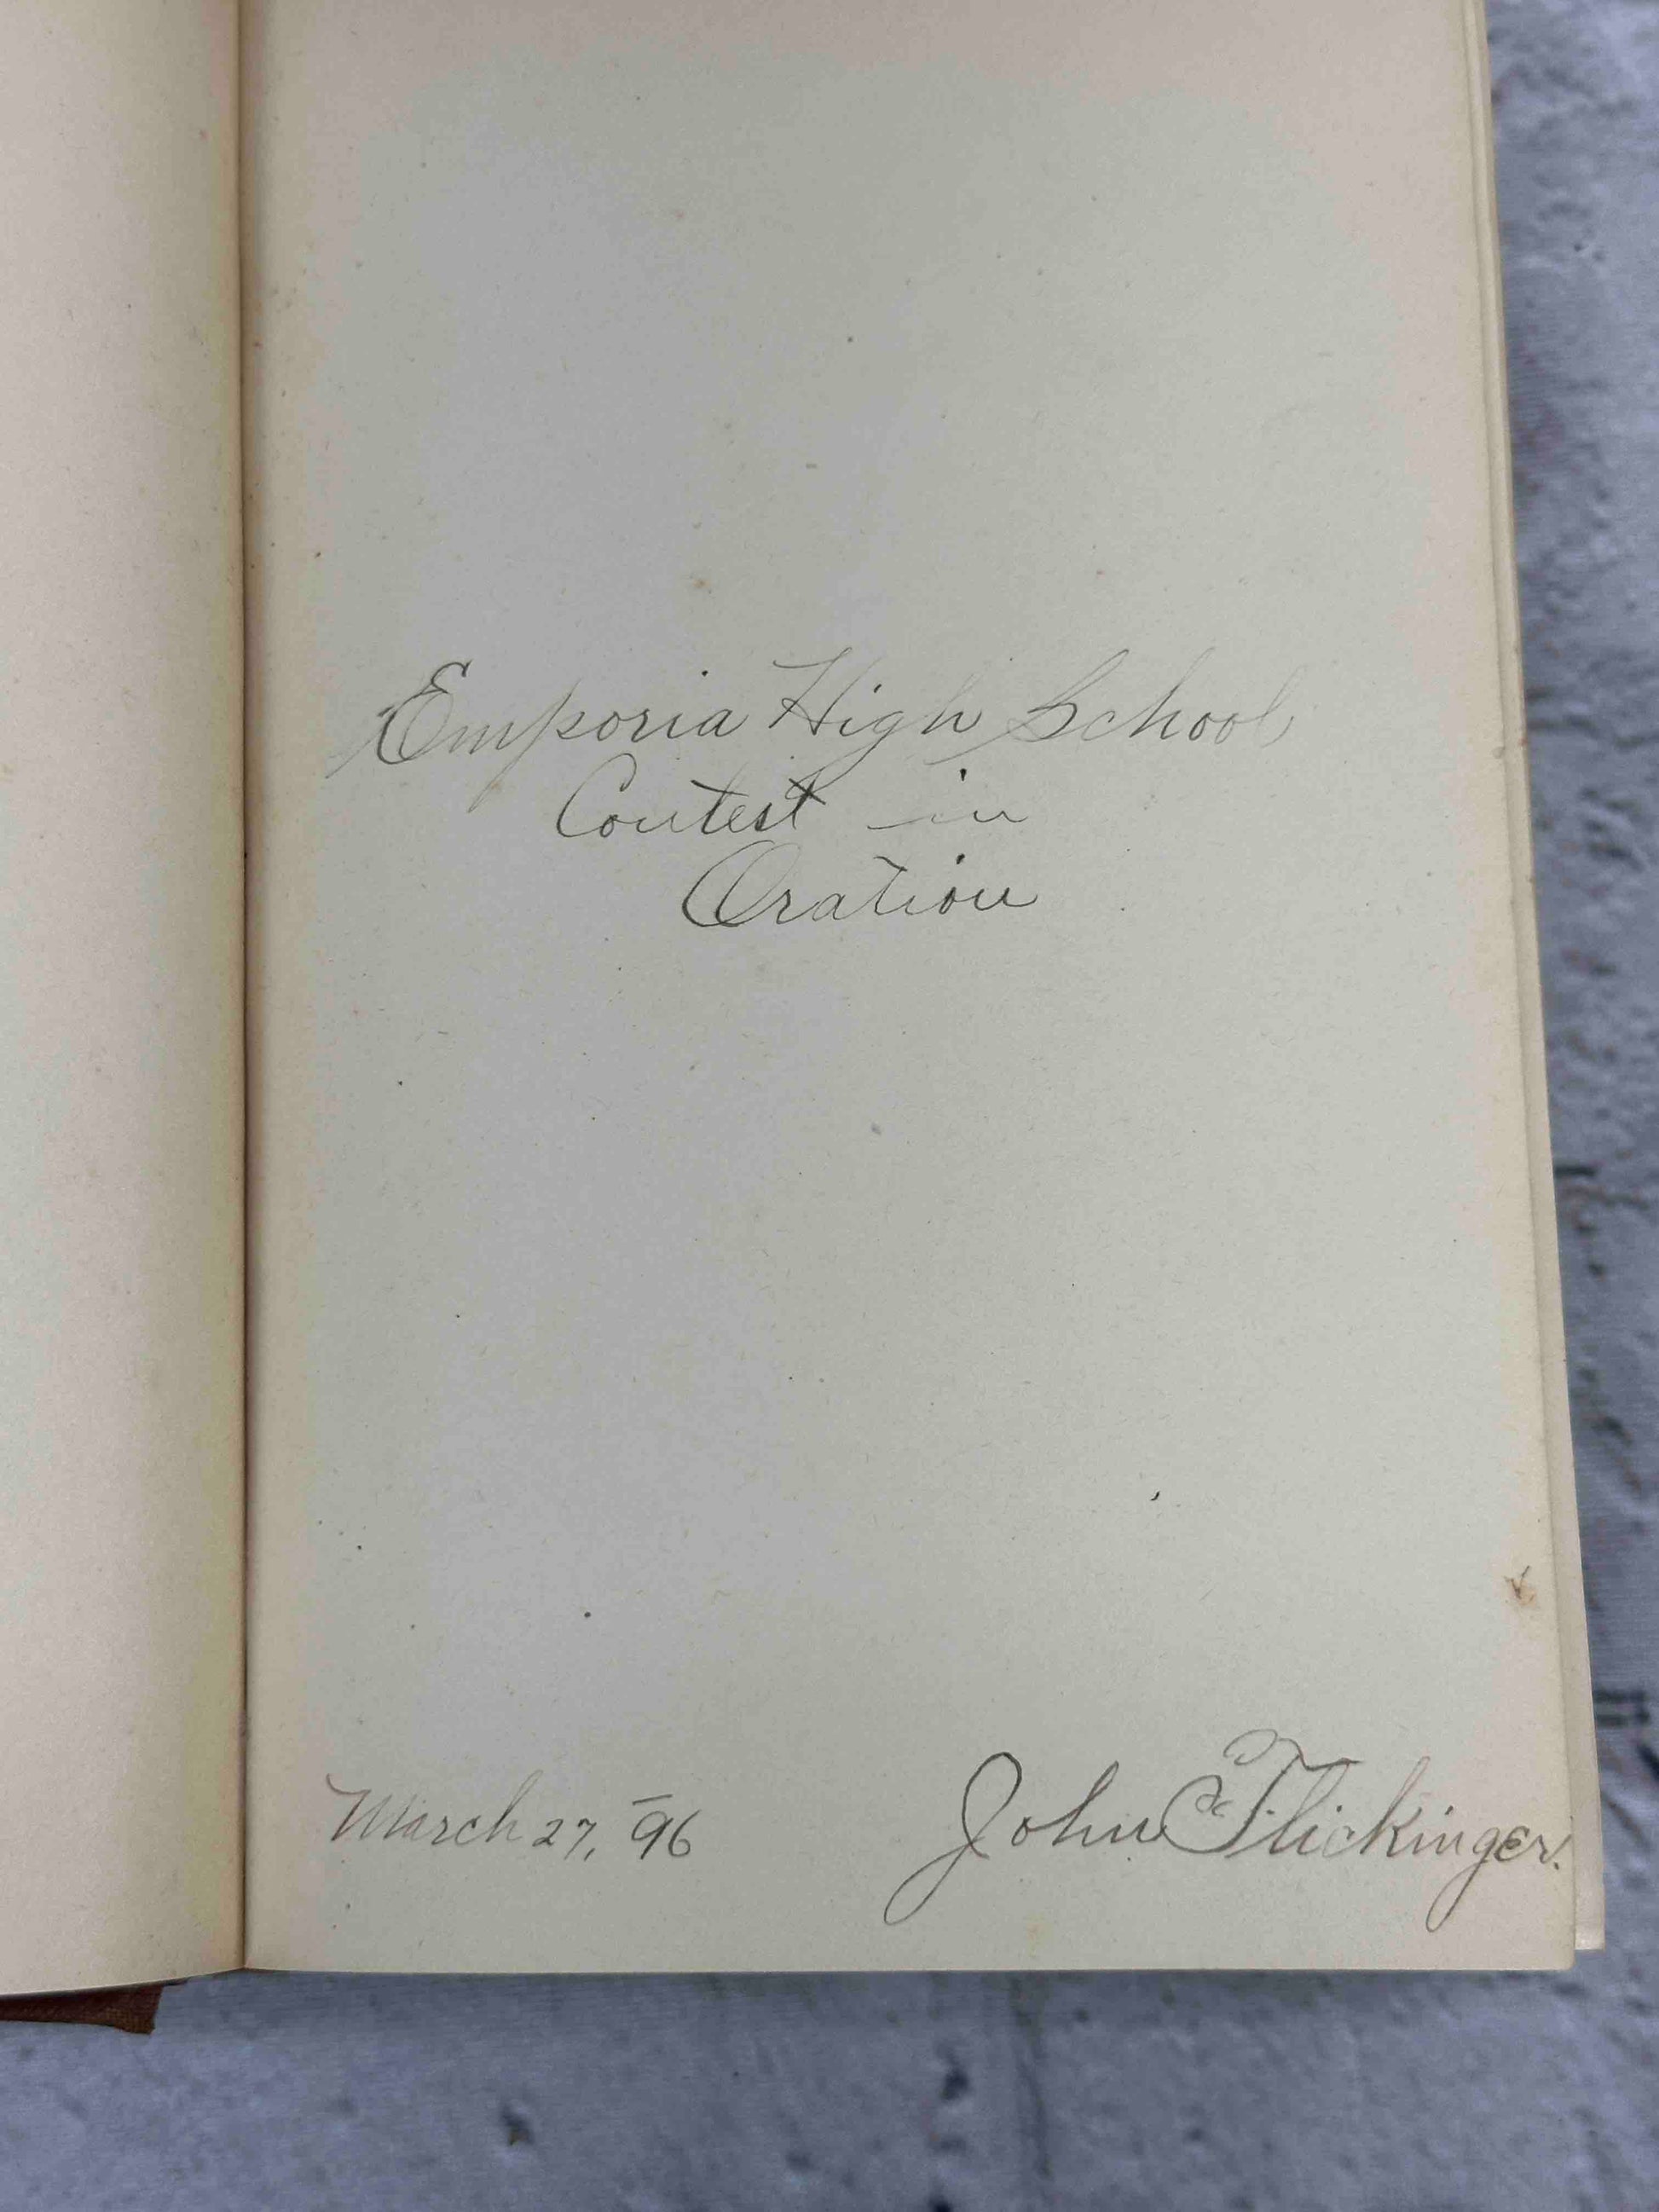 Emporia High School,
Contest in
Oration
March 27, '96
John C. Flickinger.